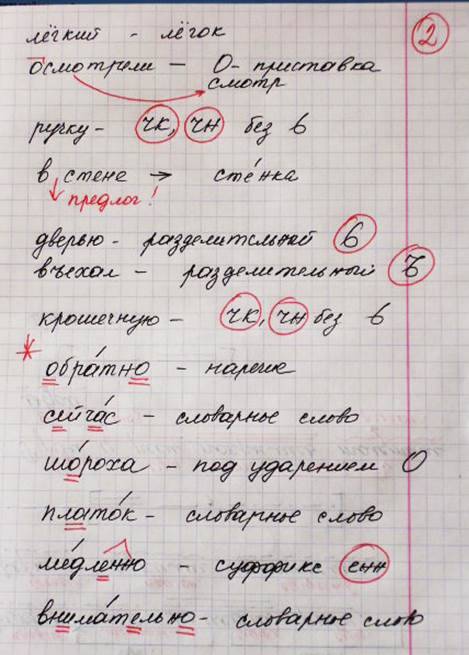 2
лёгкий - лёгок
осмотрели — О- приставка
смо́тр
ручку - чк, чн без ь
в стене → сте́нка
предлог!
дверью - разделительный ь
въехал — разделительный ъ
крошечную — чк, чн без ь
* обра́тно - наречие
сейча́с - словарное слово
шо́роха - под ударением О
плато́к - словарное слово
ме́дленно - суффикс енн
внима́тельно - словарное слово